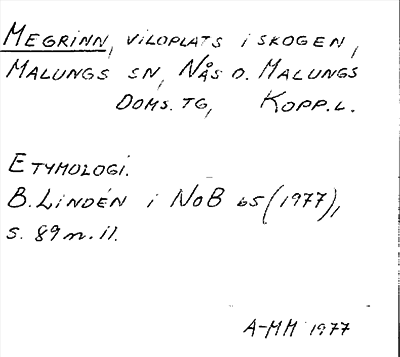 MEGRINN, VILOPLATS I SKOGEN,
MALUNGS SN, NÅS O. MALUNGS
DOMS. TG, KOPP. L.
ETYMOLOGI.
B. LINDÉN i NoB 65 (1977),
s. 89 n. 11.
A-MM 1977